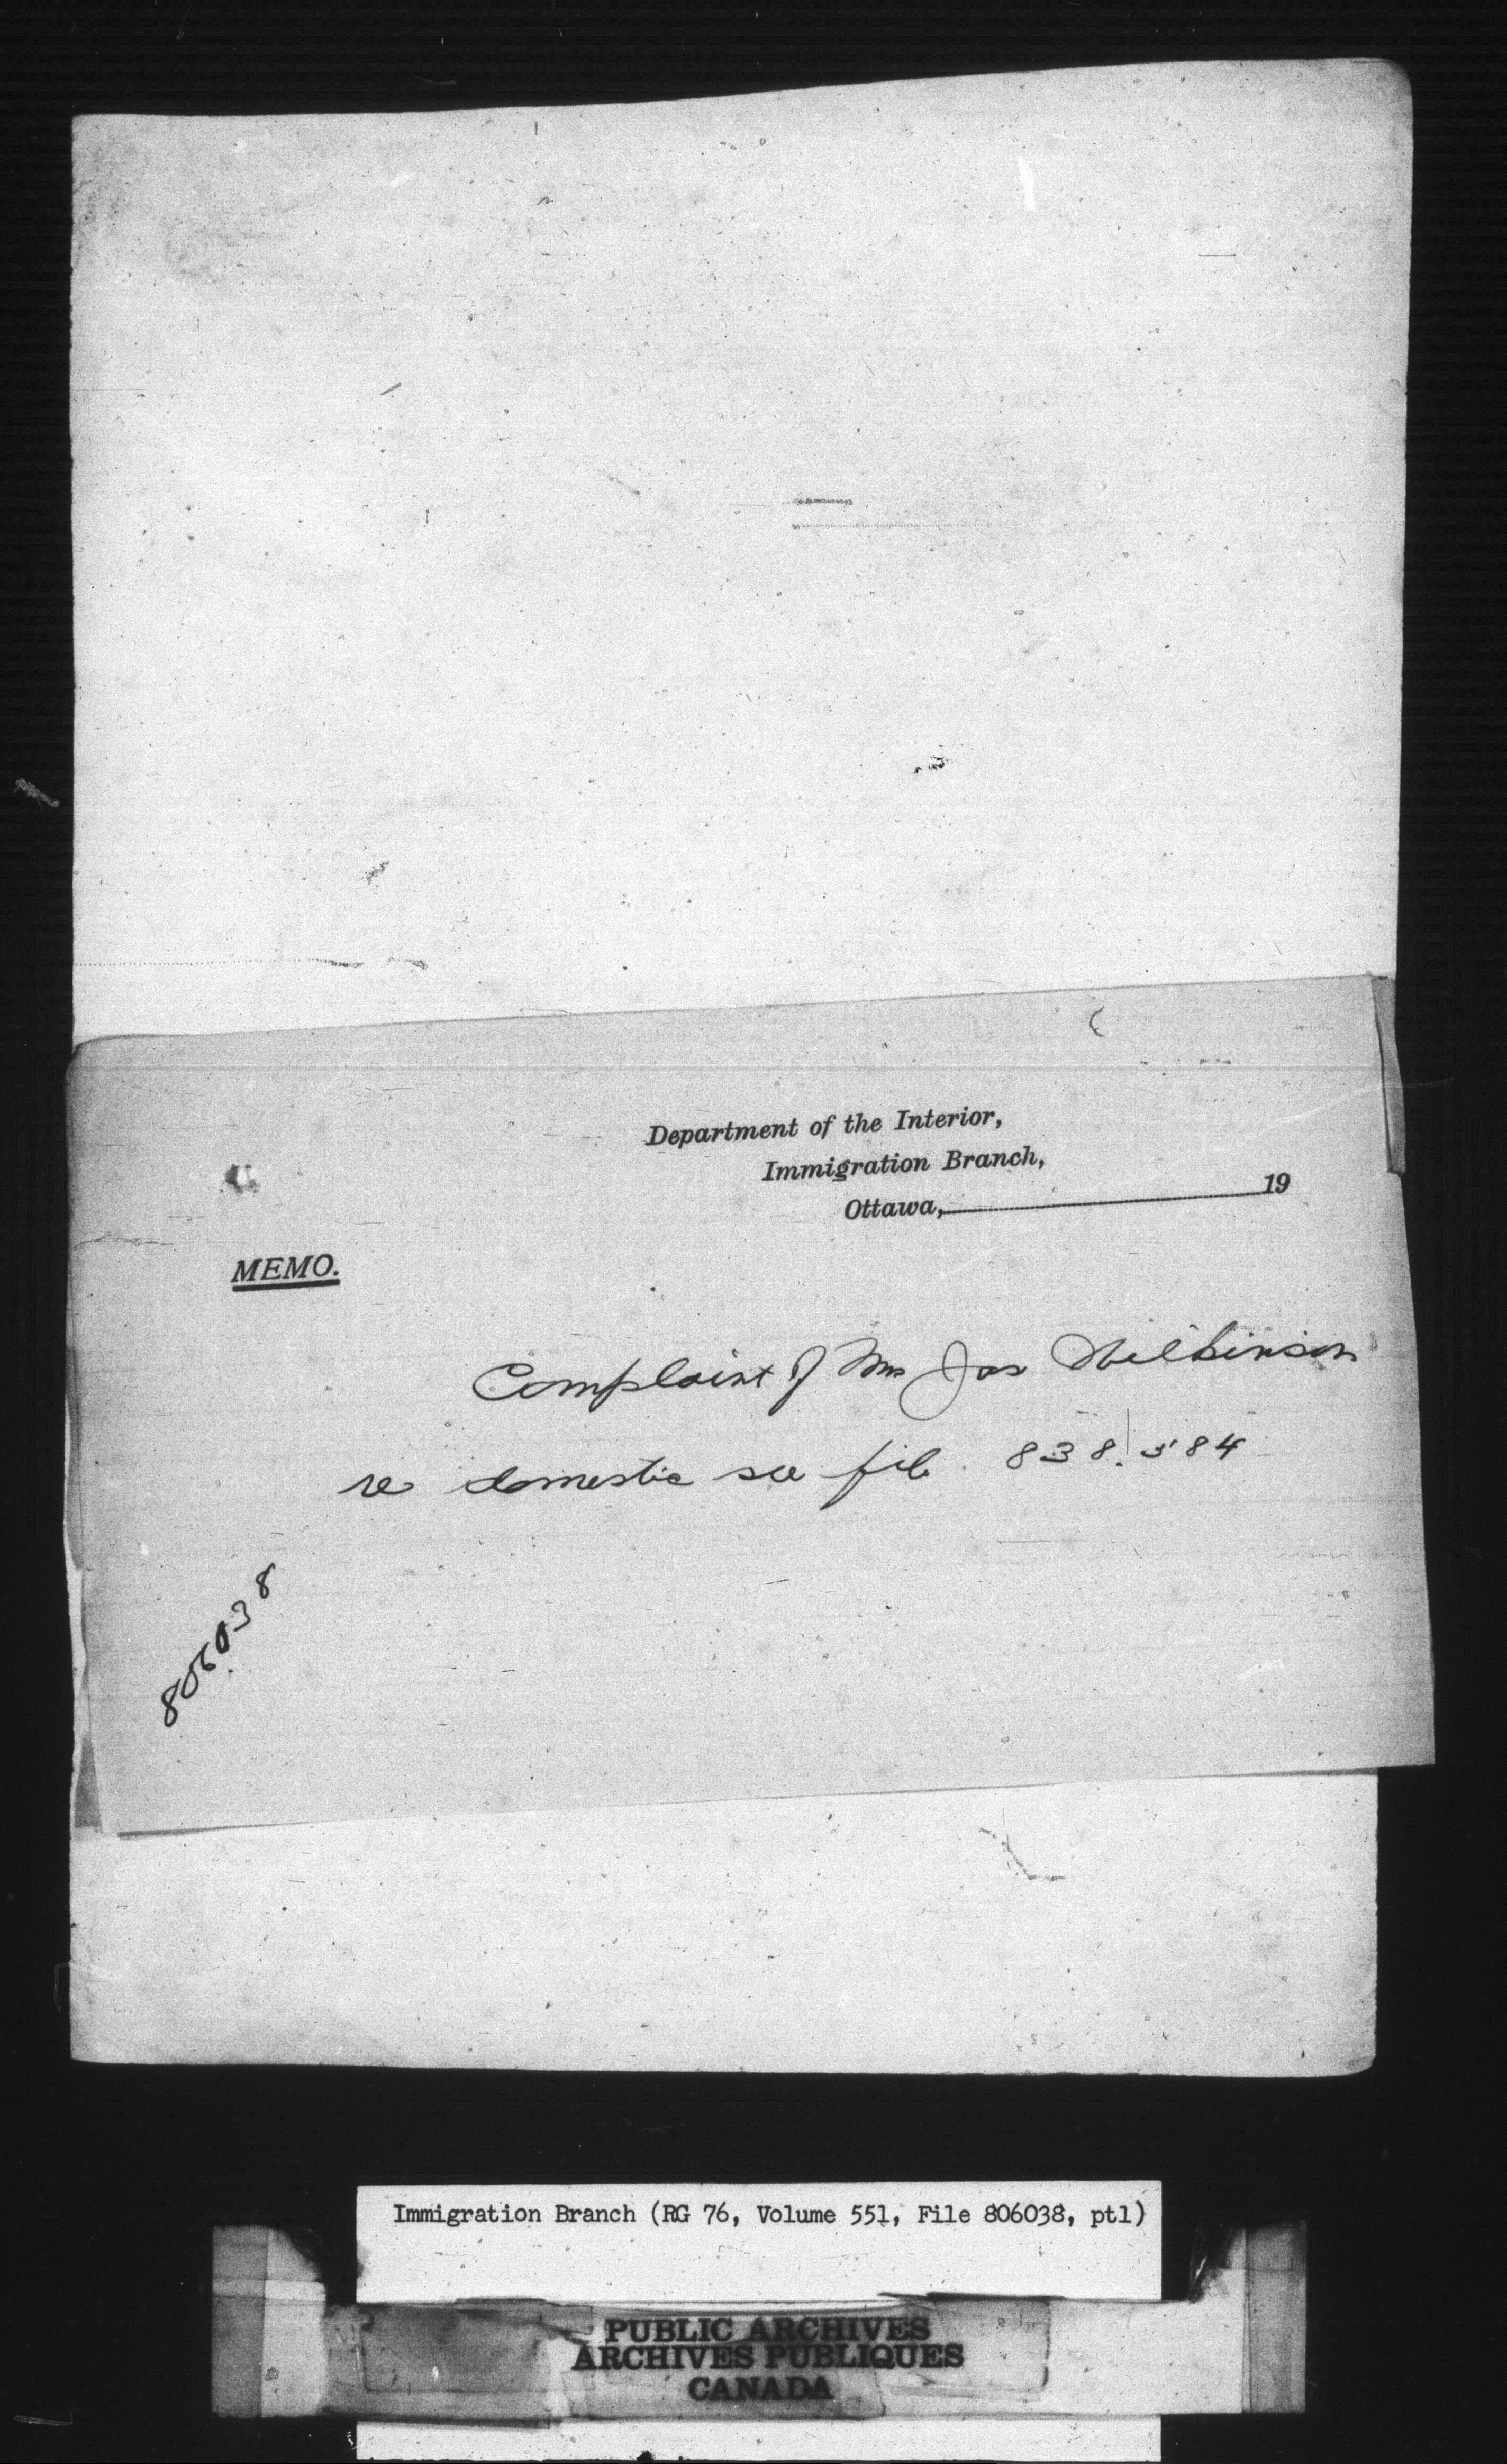 Department of the Interior,
Immigration Branch,
Ottawa, 19
MEMO.
Complaint of Mrs Jas Wilkinson
re domestic see file 838.584
806038
Immigration Branch (RG 76, Volume 551, File 806038, pt1)
PUBLIC ARCHIVES
ARCHIVES PUBLIQUES
CANADA